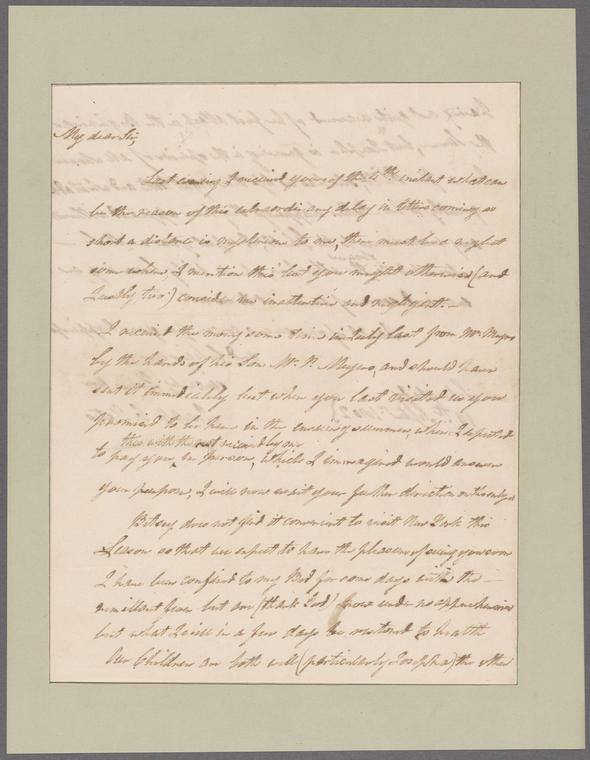 My dear Sir,
Last evening I received yours of the 4th instant what can
be the reason of this extraordinary delay in letters coming so
short a distance is mysterious to me, there must be a neglect
some where, I mention this lest you might otherwise (and
Justly too) consider me inattentive and negligent. —
I received the money some time in July last from Mr. Meyers
by the hands of his Son Mr. P. Meyers, and should have
sent it immediately but when you last visited us you
promised to be here in the ensuing summer, when I expected
this with the rest received by me
to pay you in person, which I immagined would answer
your purpose, I will now wait your further direction
Betsey does not find it convenient to visit New York this
Season so that we expect to have the pleasure of seeing you soon
I have been confined to my Bed for some days with the —
remittant fever but am (thank God) now under no apprehension
but what I will in a few days be restored to health
Our Children are both well (particularly Josepha) the other